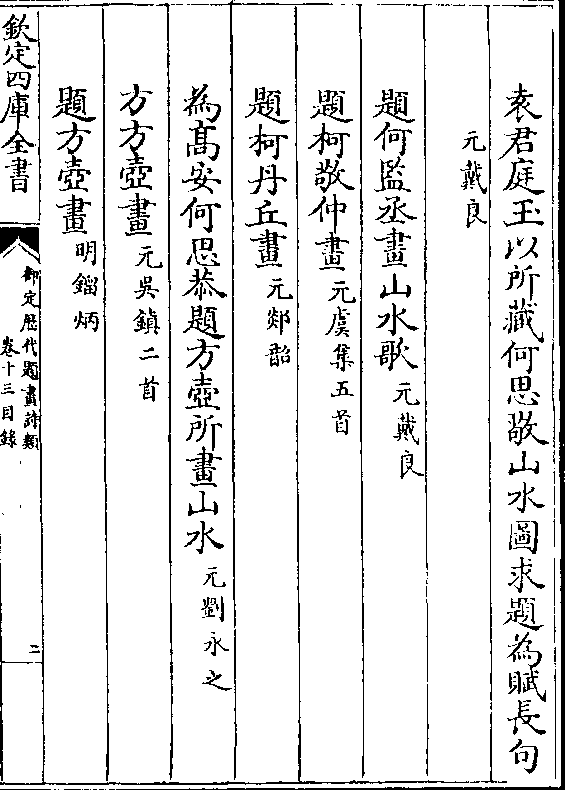 袁君庭玉以所藏何思敬山水圖求題為賦長句
元戴良
題何監丞畫山水歌 元戴良
題柯敬仲畫 元虞集五首
題柯丹丘畫 元郯韶
為髙安何思恭題方壺所畫山水 元劉永之
方方壺畫 元吳鎮二首
題方壺畫 明鎦炳
欽定四庫全書
御定歴代題畫詩類
卷十三目錄
二